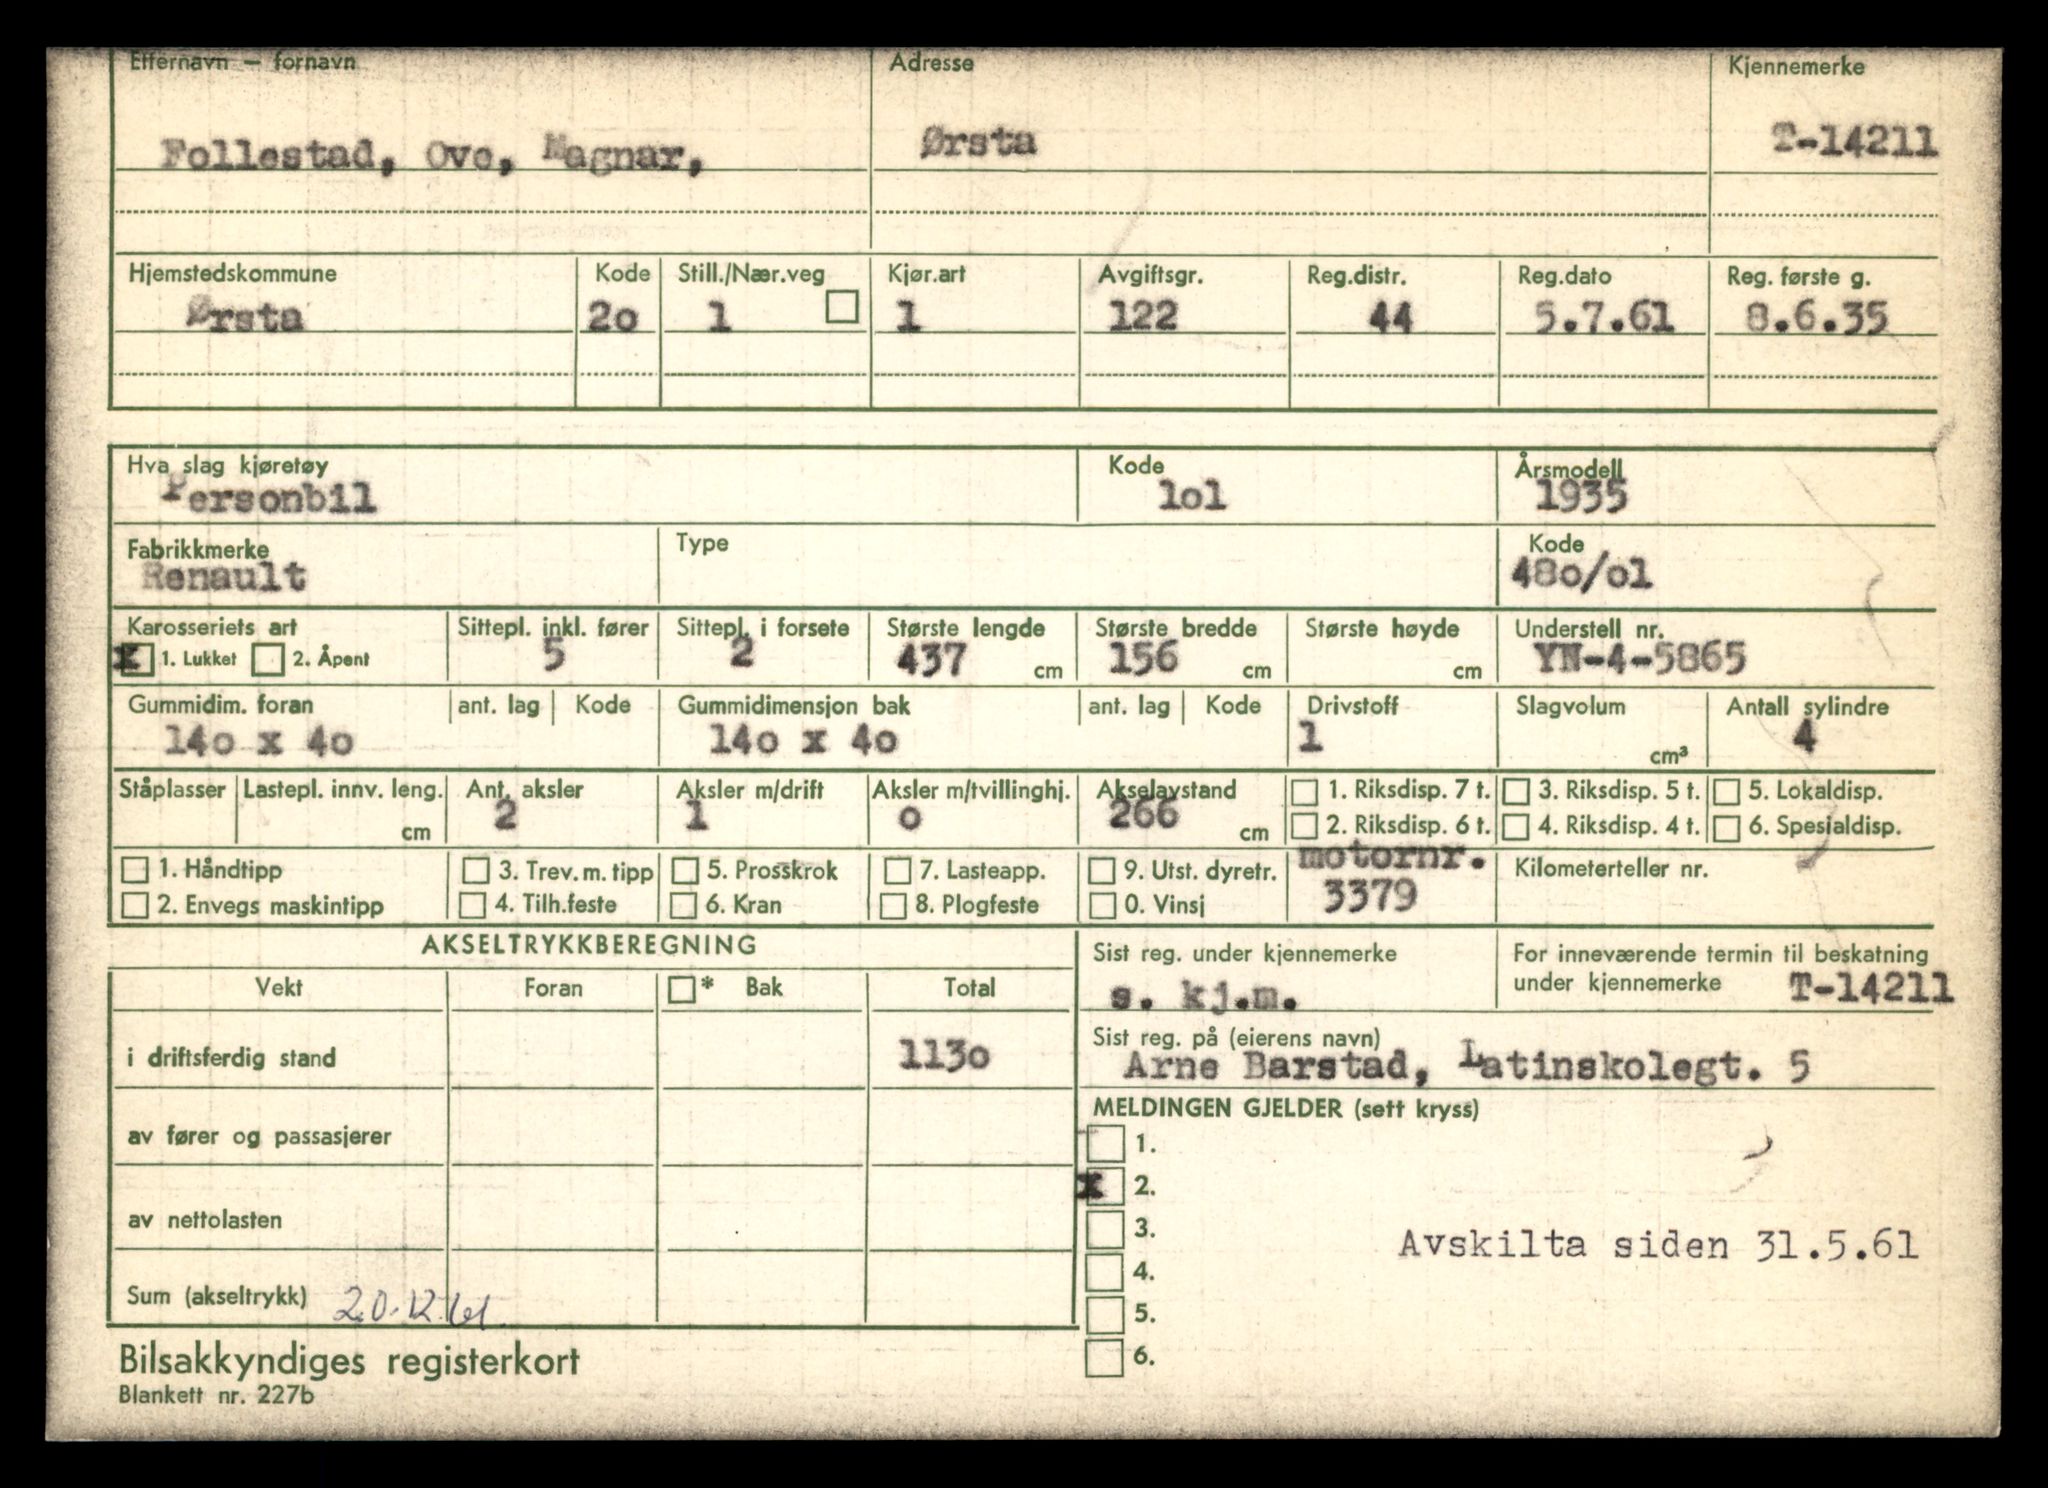 Etternavn — fornavn Adresse Kjennemerke
Follestad, Ove, Magnar, Ørsta T-14211
Hjemstedskommune Kode Still./Nær.veg Kjør.art Avgiftsgr. Reg.distr. Reg.dato Reg. første g.
Ørsta 2o 1 1 122 44 5.7.61 8.6.35
Hva slag kjøretøy Kode Årsmodell
Personbil lol 1935
Fabrikkmerke Type Kode
Renault 48o/ol
Karosseriets art Sittepl. inkl. fører Sittepl. i forsete Største lengde Største bredde Største høyde Understell nr.
x 1. Lukket 2. Åpent 5 2 437 cm 156 cm cm YN-4-5865
Gummidim. foran ant. lag Kode Gummidimensjon bak ant. lag Kode Drivstoff Slagvolum Antall sylindre
14o x 4o 14o x 4o 1 cm³ 4
Ståplasser Lastepl. innv. leng. Ant. aksler Aksler m/drift Aksler m/tvillinghj. Akselavstand 1. Riksdisp. 7 t. 3. Riksdisp. 5 t. 5. Lokaldisp.
cm 2 1 o 266 cm 2. Riksdisp. 6 t. 4. Riksdisp. 4 t. 6. Spesialdisp.
1. Håndtipp 3. Trev. m. tipp 5. Prosskrok 7. Lasteapp. 9. Utst. dyretr. motornr. Kilometerteller nr.
2. Envegs maskintipp 4. Tilh.feste 6. Kran 8. Plogfeste 0. Vinsj 3379
AKSELTRYKKBEREGNING
Vekt Foran * Bak Total
i driftsferdig stand 113o
av fører og passasjerer
av nettolasten
Sum (akseltrykk) 20.12.61.
Sist reg. under kjennemerke For inneværende termin til beskatning
s. kj.m. under kjennemerke T-14211
Sist reg. på (eierens navn)
Arne Barstad, Latinskolegt. 5
MELDINGEN GJELDER (sett kryss)
1.
x 2.
3.
Avskilta siden 31.5.61
4.
5.
6.
Bilsakkyndiges registerkort
Blankett nr. 227b